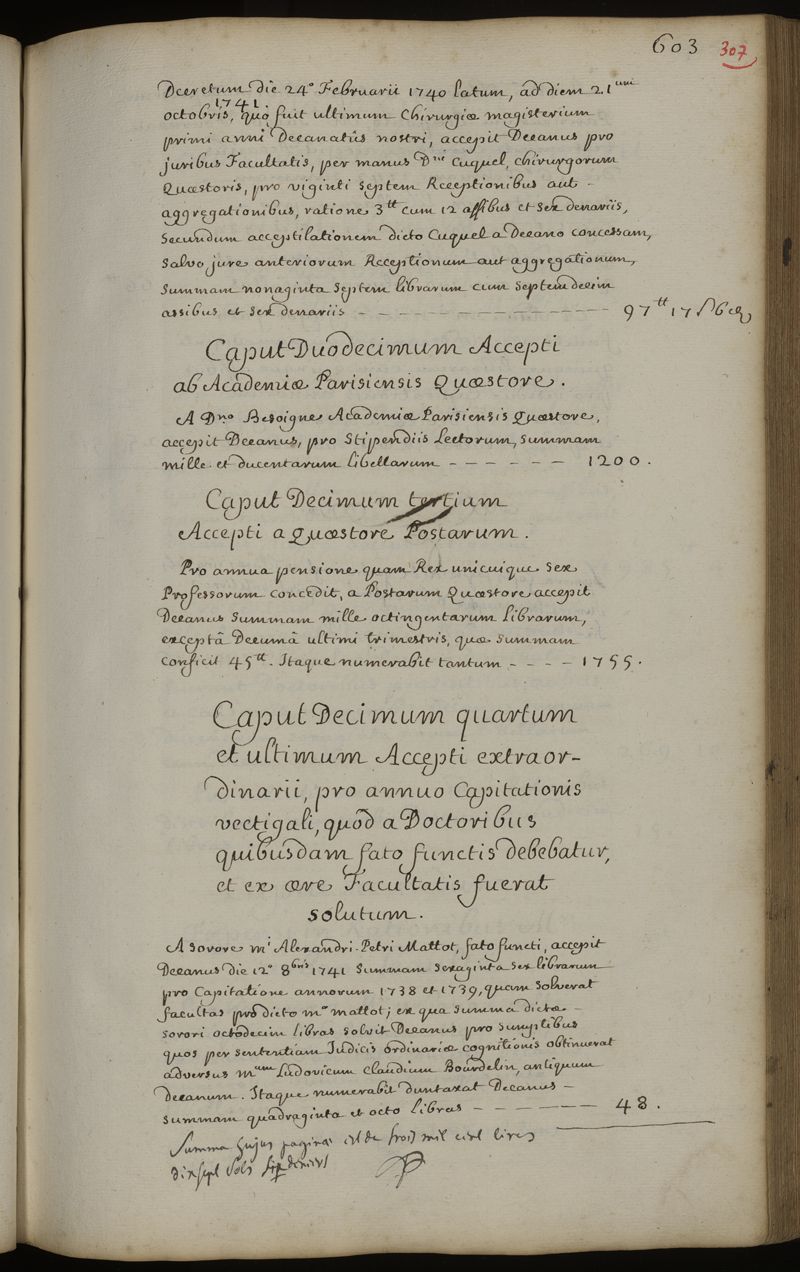 603 307
Decretum die 24° Februarii 1740 latum, ad diem 21um
octobris, 1741, quo fuit ultimum Chirurgiæ magisterium
primi anni Decanatûs nostri, accepit Decanus pro
juribus Facultatis, per manus Dni Cuquel, chirurgorum
Quæstoris, pro viginti septem Receptionibus aut
aggregationibus, ratione 3tt cum 12 assibus et sex denariis,
secundum acceptilationem dicto Cuquel a Decano concessam,
salvo jure anteriorum Receptionum aut aggregationum,
summam nonaginta septem librarum cum septemdecim
assibus et sex denariis - - - - - - - - - - 97tt 17 s 6 d
Caput Duodecimum Accepti
ab Academiæ Parisiensis Quæstore.
A Dno Besoigne Academiæ Parisiensis Quæstore,
accepit Decanus, pro Stipendiis Lectorum, summam
mille et ducentarum libellarum - - - - - - 1200.
Caput Decimum tertium
Accepti a Quæstore Postarum.
Pro annua pensione quam Rex unicuique sex
Professorum concedit, a Postarum Quæstore accepit
Decanus summam mille octingentarum librarum,
exceptâ Decumâ ultimi trimestris, quæ summam
conficit 45tt. Itaque numerabit tantum - - - - 1755.
Caput Decimum quartum
et ultimum Accepti extraor-
dinarii, pro annuo Capitationis
vectigali, quod a Doctoribus
quibusdam fato functis debebatur,
et ex ære Facultatis fuerat
solutum.
A sorore mi Alexandri-Petri Mattot, fato functi, accepit
Decanus die 12° 8bris 1741 summam sexaginta sex librarum
pro Capitatione annorum 1738 et 1739, quam solverat
facultas pro dicto mro mattot; ex qua summa dictæ
sorori octodecim libras solvit Decanus pro sumptibus
quos per sententiam Judicis ordinariæ cognitionis obtinuerat
adversus mum Ludovicum Claudium Bourdelin, antiquum
Decanum. Itaque numerabit duntaxat Decanus
summam quadraginta et octo libras - - - - - - - 48.
Summa hujus paginæ est de trois mil cent livres
dix sept sols six deniers